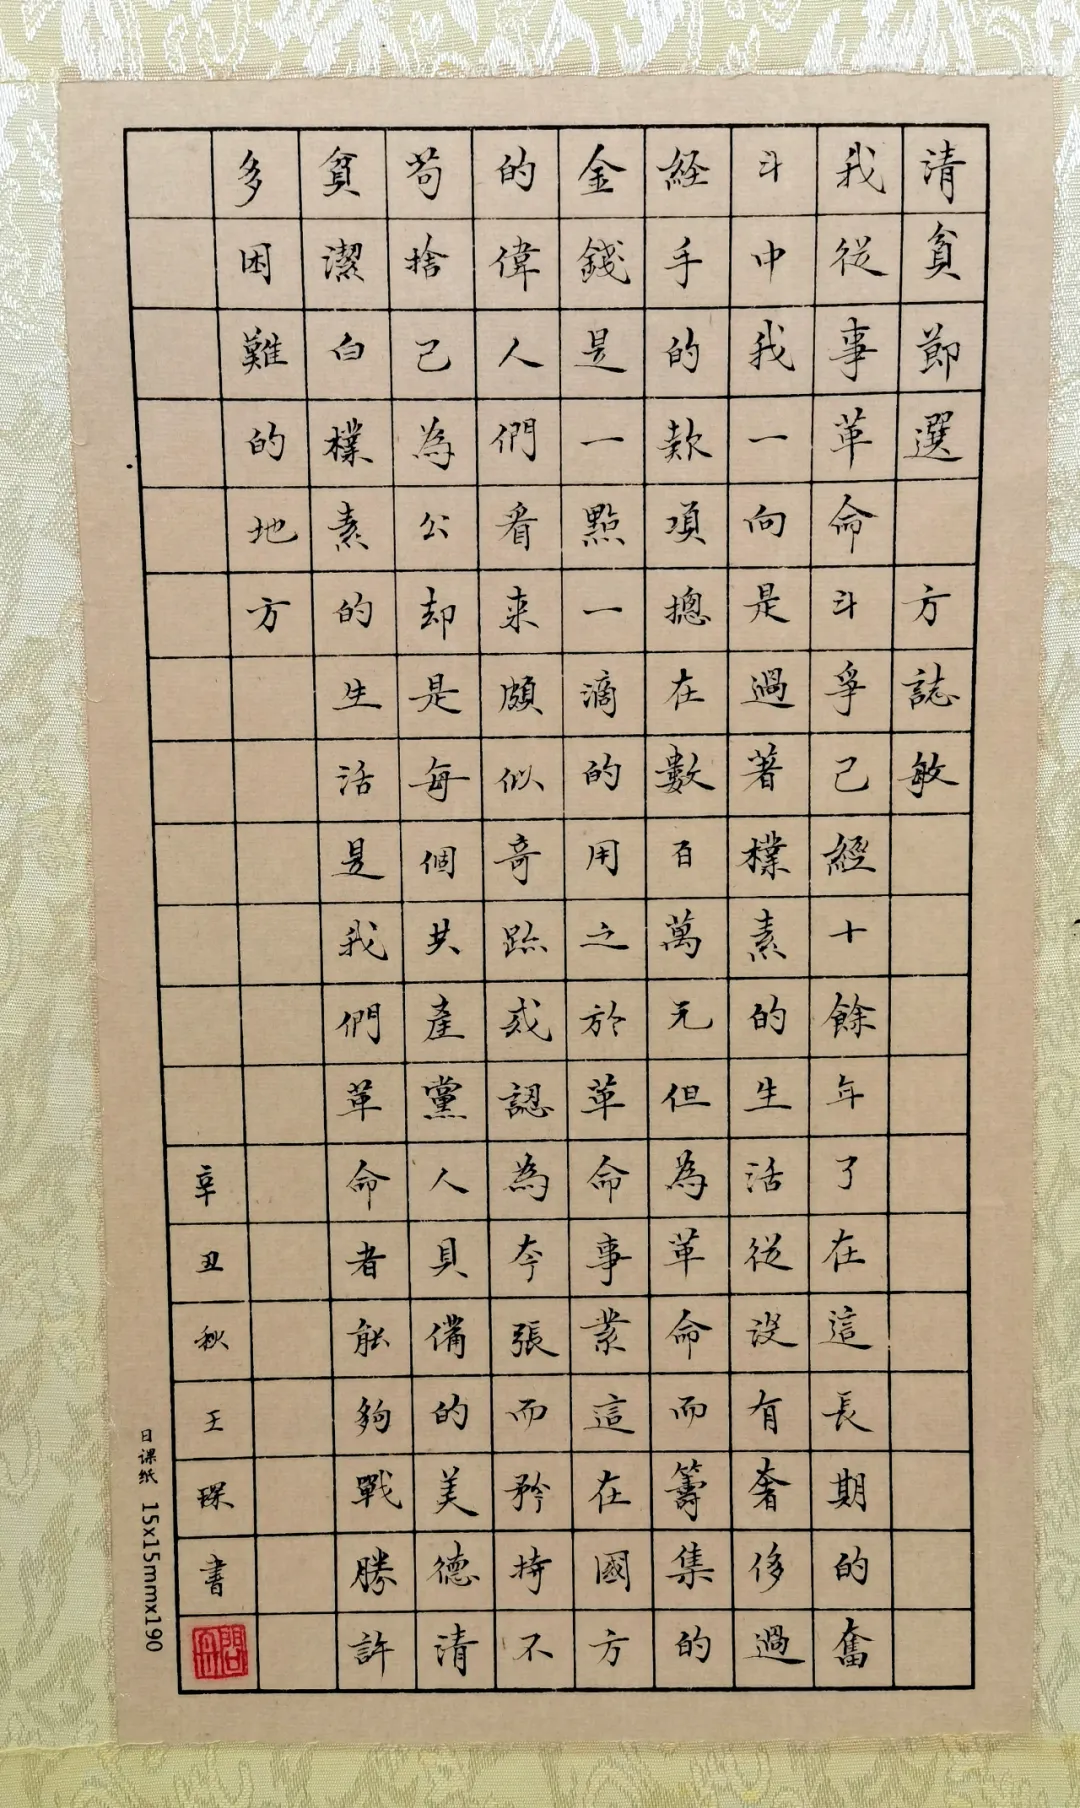 清貧節選 方誌敏
我從事革命斗爭已經十餘年了在這長期的奮
斗中我一向是過著樸素的生活從没有奢侈過
經手的款項摠在數百萬元但為革命而籌集的
金錢是一點一滴的用之於革命事業這在國方
的偉人們看来頗似竒跡或認為夸張而矜持不
苟捨己為公却是每個共產黨人具備的美德清
貧潔白樸素的生活是我們革命者能夠戰勝許
多困難的地方
辛丑秋王琛書
日课纸 15x15mmx190